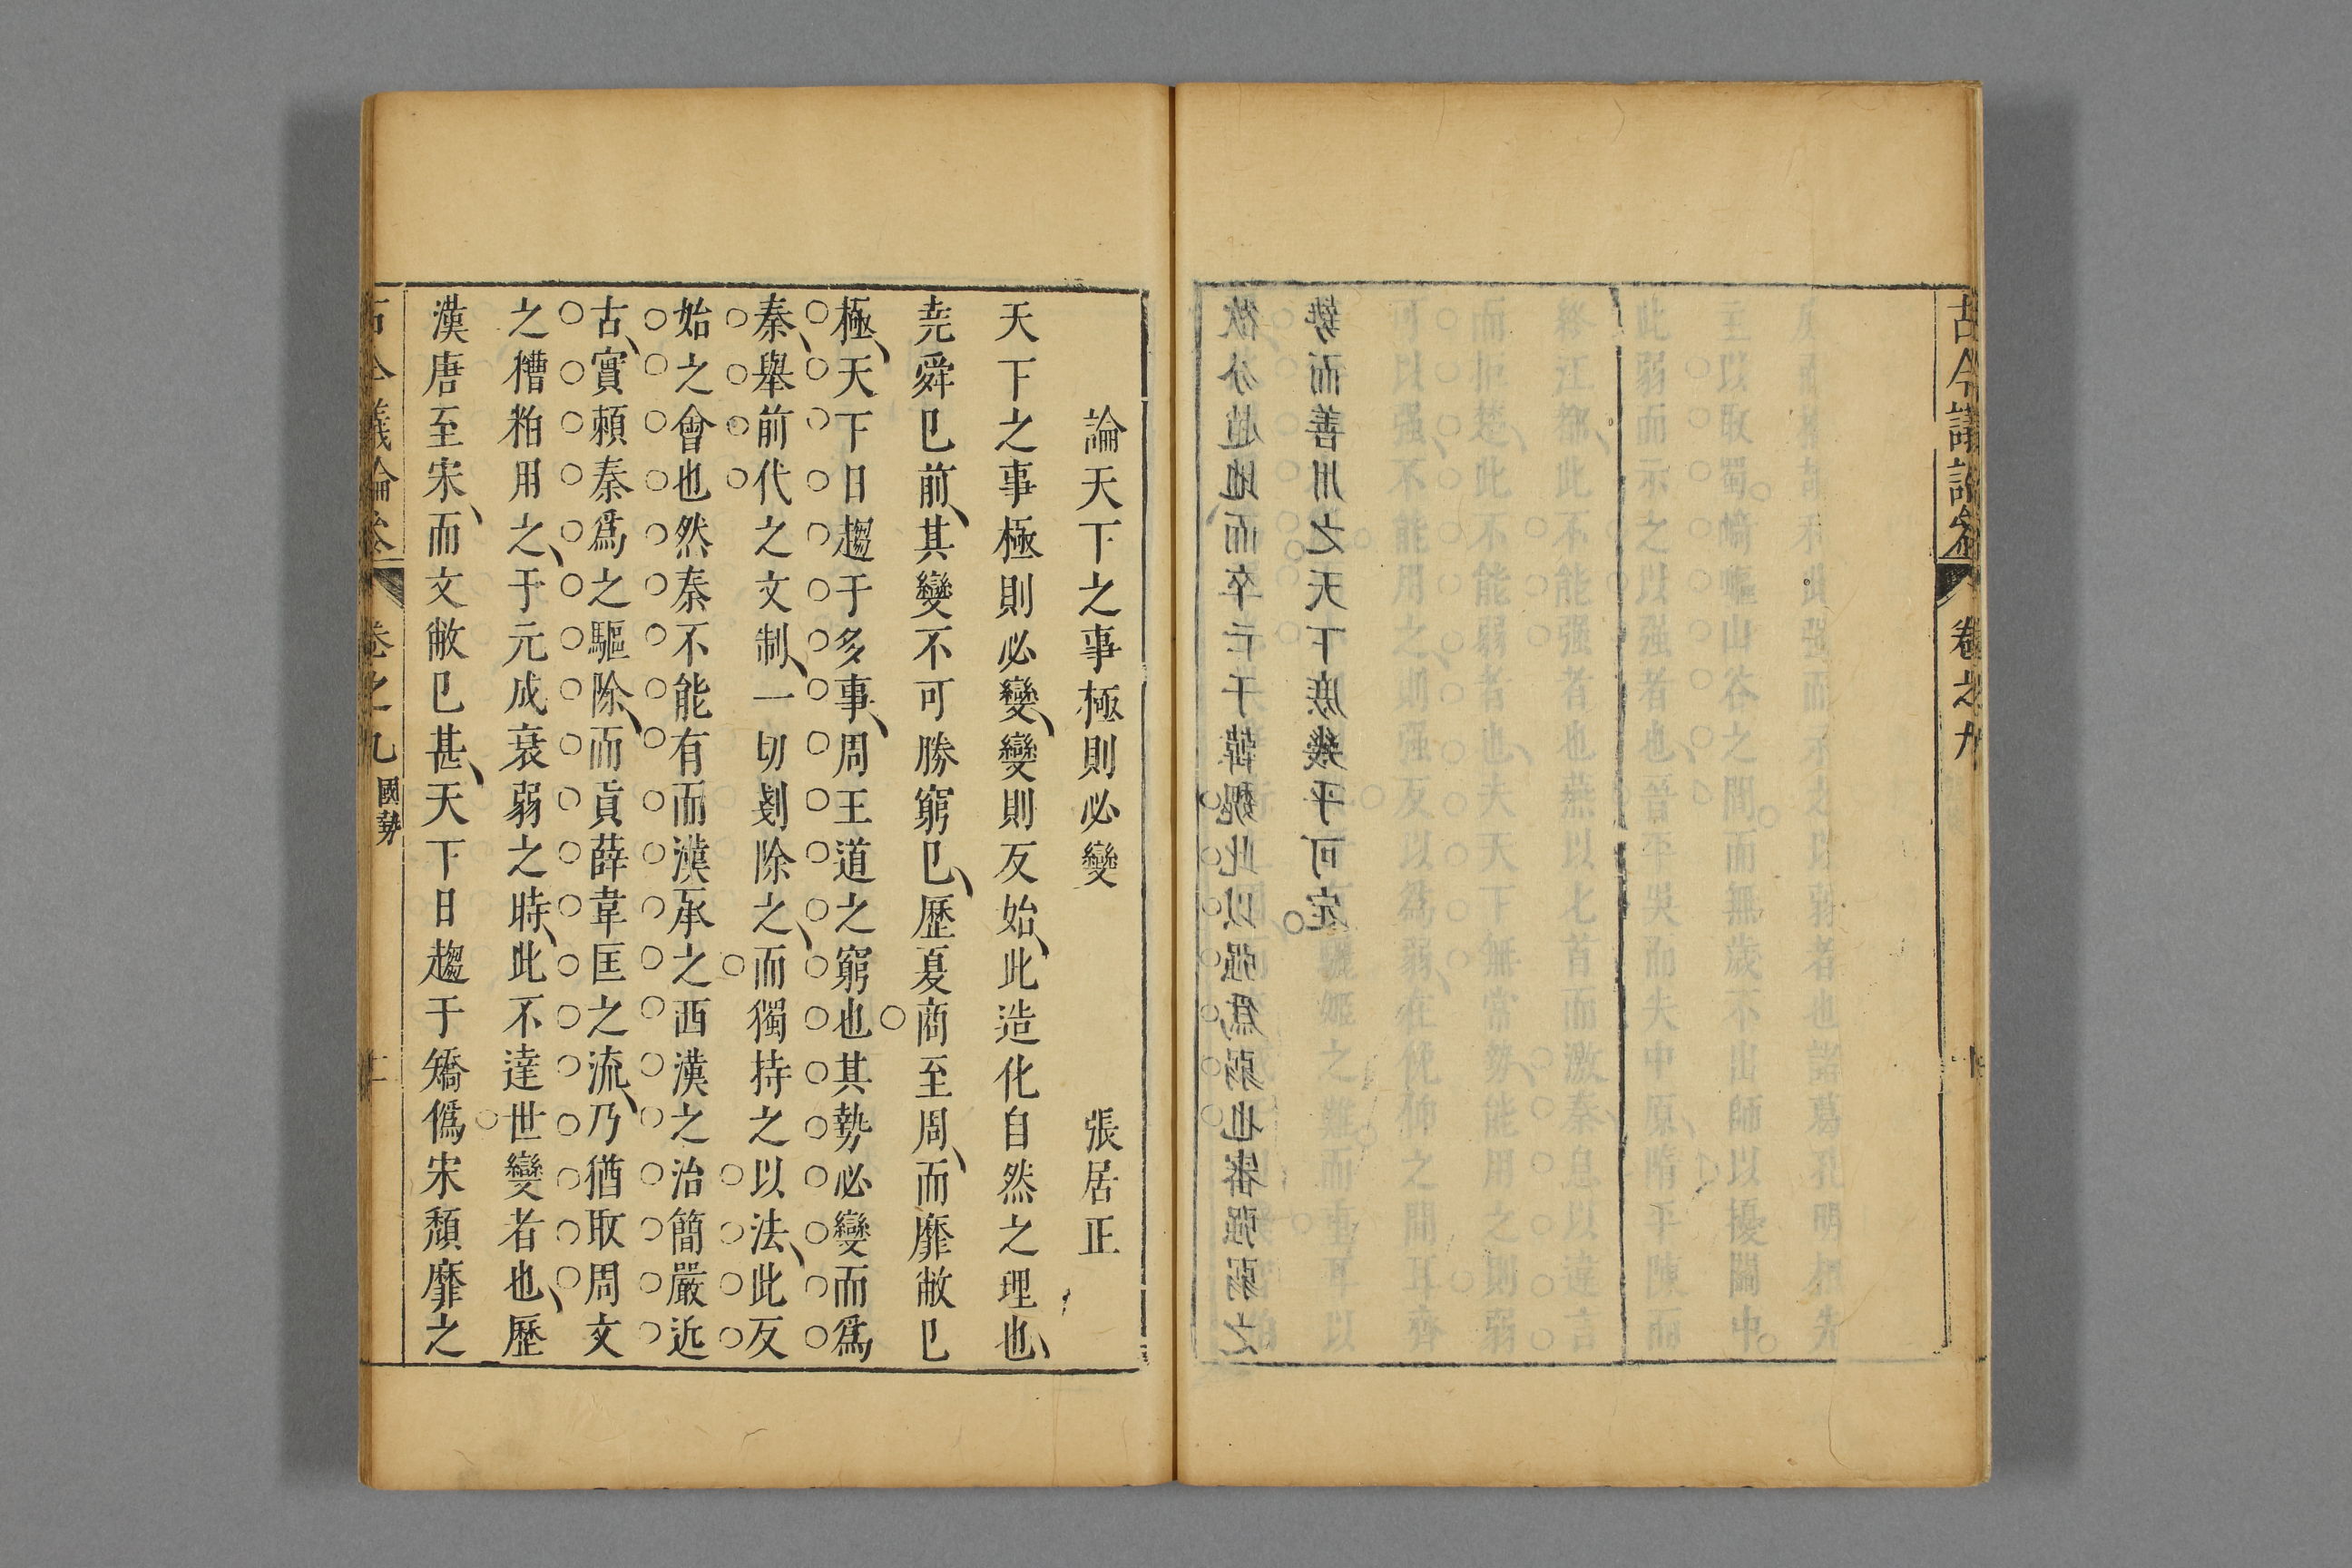 古今議論參 卷之九 十
此强而示之以弱者也諸葛孔明相先
至以取蜀崎嶇山谷之間而無歲不出師以擾關中
此弱而示之以强者也晉平吳而失中原隋平陳而
終江都此不能强者也燕以匕首而激秦息以違言
而拒楚此不能弱者也夫天下無常勢能用之則弱
可以强不能用之則强反以為弱在俛仰之間耳齊
驪姬之難而重耳以
欲分趙地而卒亡于韓魏此以强爲弱也審强弱之
勢而善用之天下庶幾乎可定
論天下之事極則必變 張居正
天下之事極則必變變則反始此造化自然之理也
尭舜巳前其變不可勝窮巳歷夏商至周而靡敝巳
極天下日趨于多事周王道之窮也其勢必變而爲
秦舉前代之文制一切剗除之而獨持之以法此反
始之會也然秦不能有而漢承之西漢之治簡嚴近
古實頼秦爲之驅除而貢薛韋匡之流乃猶取周文
之糟粕用之于元成衰弱之時此不達世變者也歷
漢唐至宋而文敝巳甚天下日趨于矯僞宋頹靡之
古今議論參 卷之九 國勢 十一